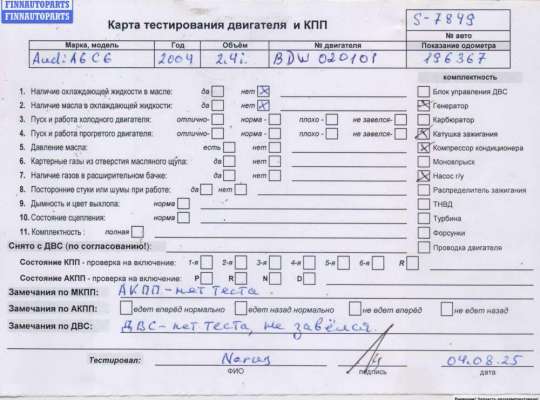 FINNAUTOPARTS
FINNAUTOPARTS
Карта тестирования двигателя и КПП
S-7849
№ авто
Марка, модель Год Объём № двигателя Показание одометра
Audi A6 C6 2004 2.4i. BDW 020101 196367
комплектность
1. Наличие охлаждающей жидкости в масле: да нет x Блок управления ДВС
2. Наличие масла в охлаждающей жидкости: да нет x Генератор
3. Пуск и работа холодного двигателя: отлично- норма - плохо - не завелся- Карбюратор
4. Пуск и работа прогретого двигателя: отлично- норма - плохо - не завелся- Катушка зажигания
5. Давление масла: есть нет Компрессор кондиционера
6. Картерные газы из отверстия масляного щупа: да нет Моновпрыск
7. Наличие газов в расширительном бачке: да нет Насос г/у
8. Посторонние стуки или шумы при работе: да нет Распределитель зажигания
9. Дымность и цвет выхлопа: норма ТНВД
10. Состояние сцепления: норма Турбина
11. Комплектность : полная Форсунки
Снято с ДВС (по согласованию!): Проводка двигателя
Состояние КПП - проверка на включение: 1-я 2-я 3-я 4-я 5-я 6-я R
Состояние АКПП - проверка на включение: P R N D
Замечания по МКПП: АКПП-нет теста
Замечания по АКПП: едет вперёд нормально едет назад нормально не едет вперёд не едет назад
Замечания по ДВС: ДВС-нет теста, не завёлся.
Тестировал: 04.08.25
ФИО подпись дата